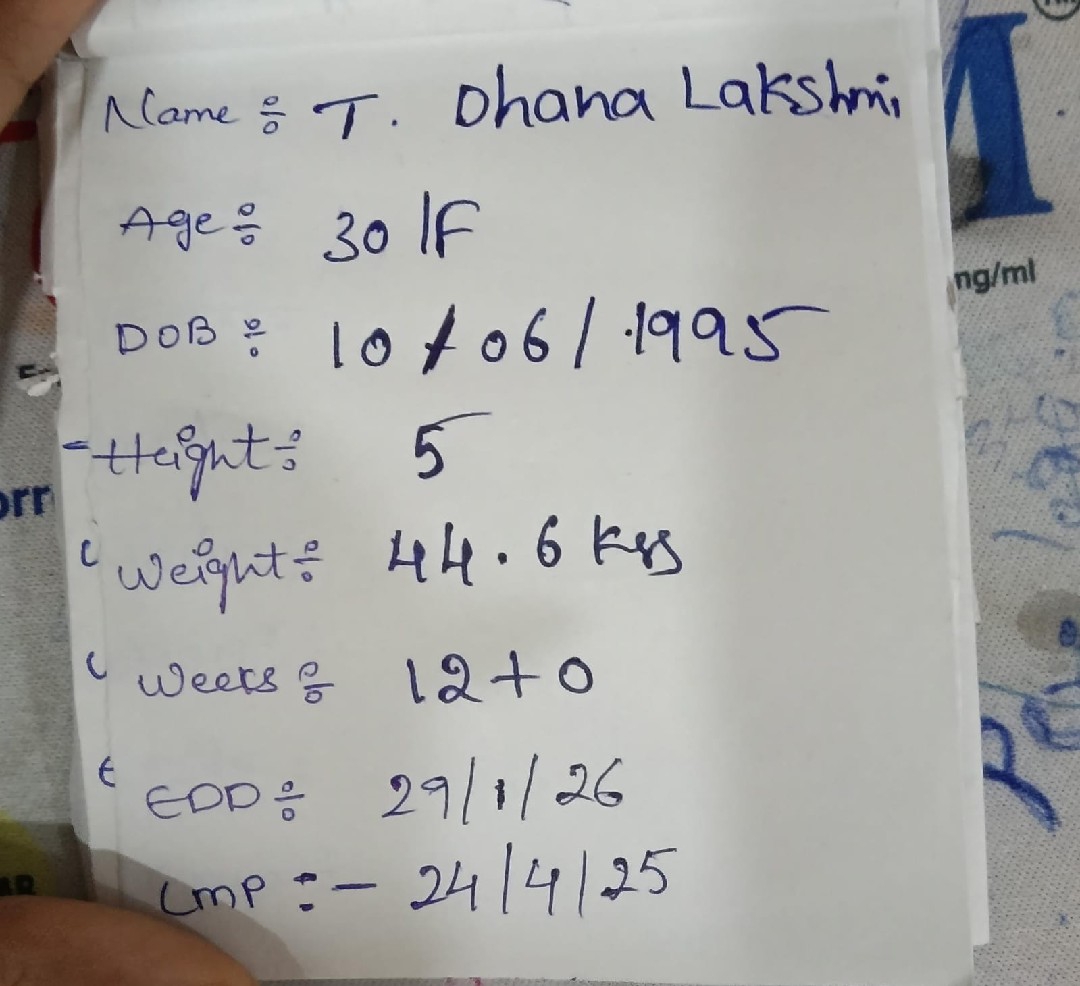 Name ÷ T. Dhana Lakshmi
Age ÷ 30/F
DOB ÷ 10/06/1995
Height ÷ 5
Weight ÷ 44.6 kgs
Weeks ÷ 12+0
EDD ÷ 29/1/26
LMP :- 24/4/25
ng/ml
orr